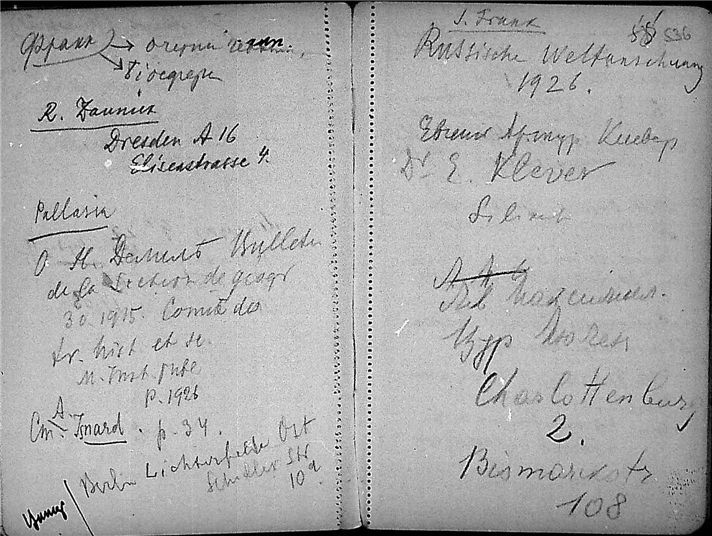 Франк → очерки
→ биография
R. Zaunick
Dresden A 16
Elisenstrasse 4.
Pallasia
О Н. Демидов Bulletin
de la Section de géogr
30. 1915. Comité des
tr. hist et sc.
M. Inst publ
P. 1926
См. A. Isnard. p. 34.
Berlin Lichterfelde Ost
Schiller Str
10a
S. Frank
536
Russische Weltanschauung
1926.
Евгений Артур. Клевер
Dr E. Klever
Silicat
Charlottenburg
2.
Bismarckstr
108